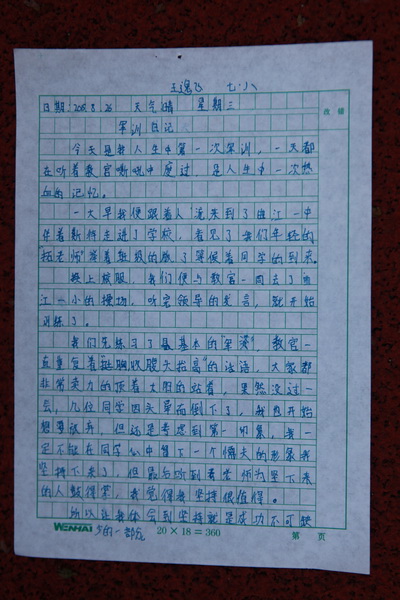 王逸飞 七·八
日期:2015.8.26 天气晴 星期三
军训日记
今天是我人生中第一次军训,一天都
在听着教官嘶吼中度过,是人生中一次热
血的记忆。
一大早我便跟着人流来到了曲江一中
伴着斯特走进了学校,看见了我们年轻的
"拓老师"举着班级的牌子等候着同学的到来。
换上校服,我们便与教官一同去了曲
江一小的操场,听完领导的发言,就开始
训练了。
我们先练习了最基本的"军姿",教官一
直重复着"挺胸收腹头抬高"的话语,大家都
非常卖力的顶着太阳的站着,果然没过一
会,几位同学因头晕而倒下了,我也开始
想要放弃,但还是考虑到第一印象,我一
定不能在同学心中留下一个懦夫的形象我
坚持下来了,但最后听到老师为坚下来
的人鼓得掌,我觉得我坚持很值得。
所以让我体会到坚持就是成功不可缺
少的一部分
WENHAI 20×18=360 第 页